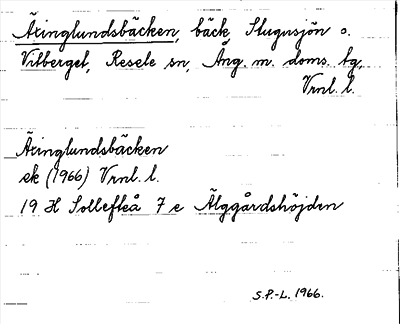 Äxinglundsbäcken, bäck Slugnsjön o.
Vitberget, Resele sn, Ång. m. doms. tg,
Vrnl. l.
Äxinglundsbäcken
ek (1966) Vrnl. l.
19 H Sollefteå 7 e Älggårdshöjden
S.P.-L. 1966.